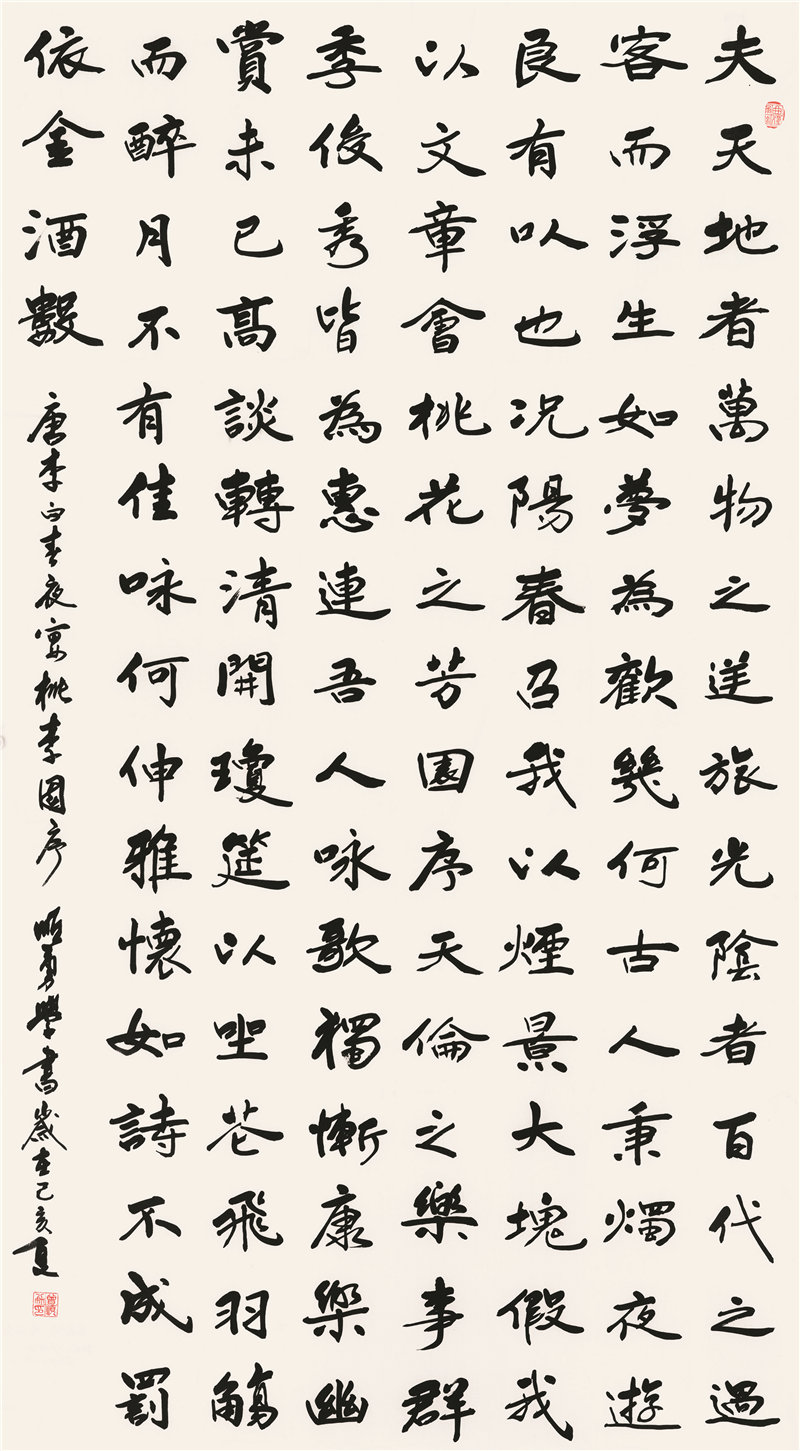 夫天地者萬物之逆旅光陰者百代之過
客而浮生如夢為歡幾何古人秉燭夜遊
良有以也况陽春召我以煙景大塊假我
以文章會桃花之芳園序天倫之樂事群
季俊秀皆為惠連吾人咏歌獨慚康樂幽
賞未已高談轉清開瓊筵以坐花飛羽觴
而醉月不有佳咏何伸雅懷如詩不成罰
依金酒數 唐李白春夜宴桃李園序 順勇學書歲在己亥夏